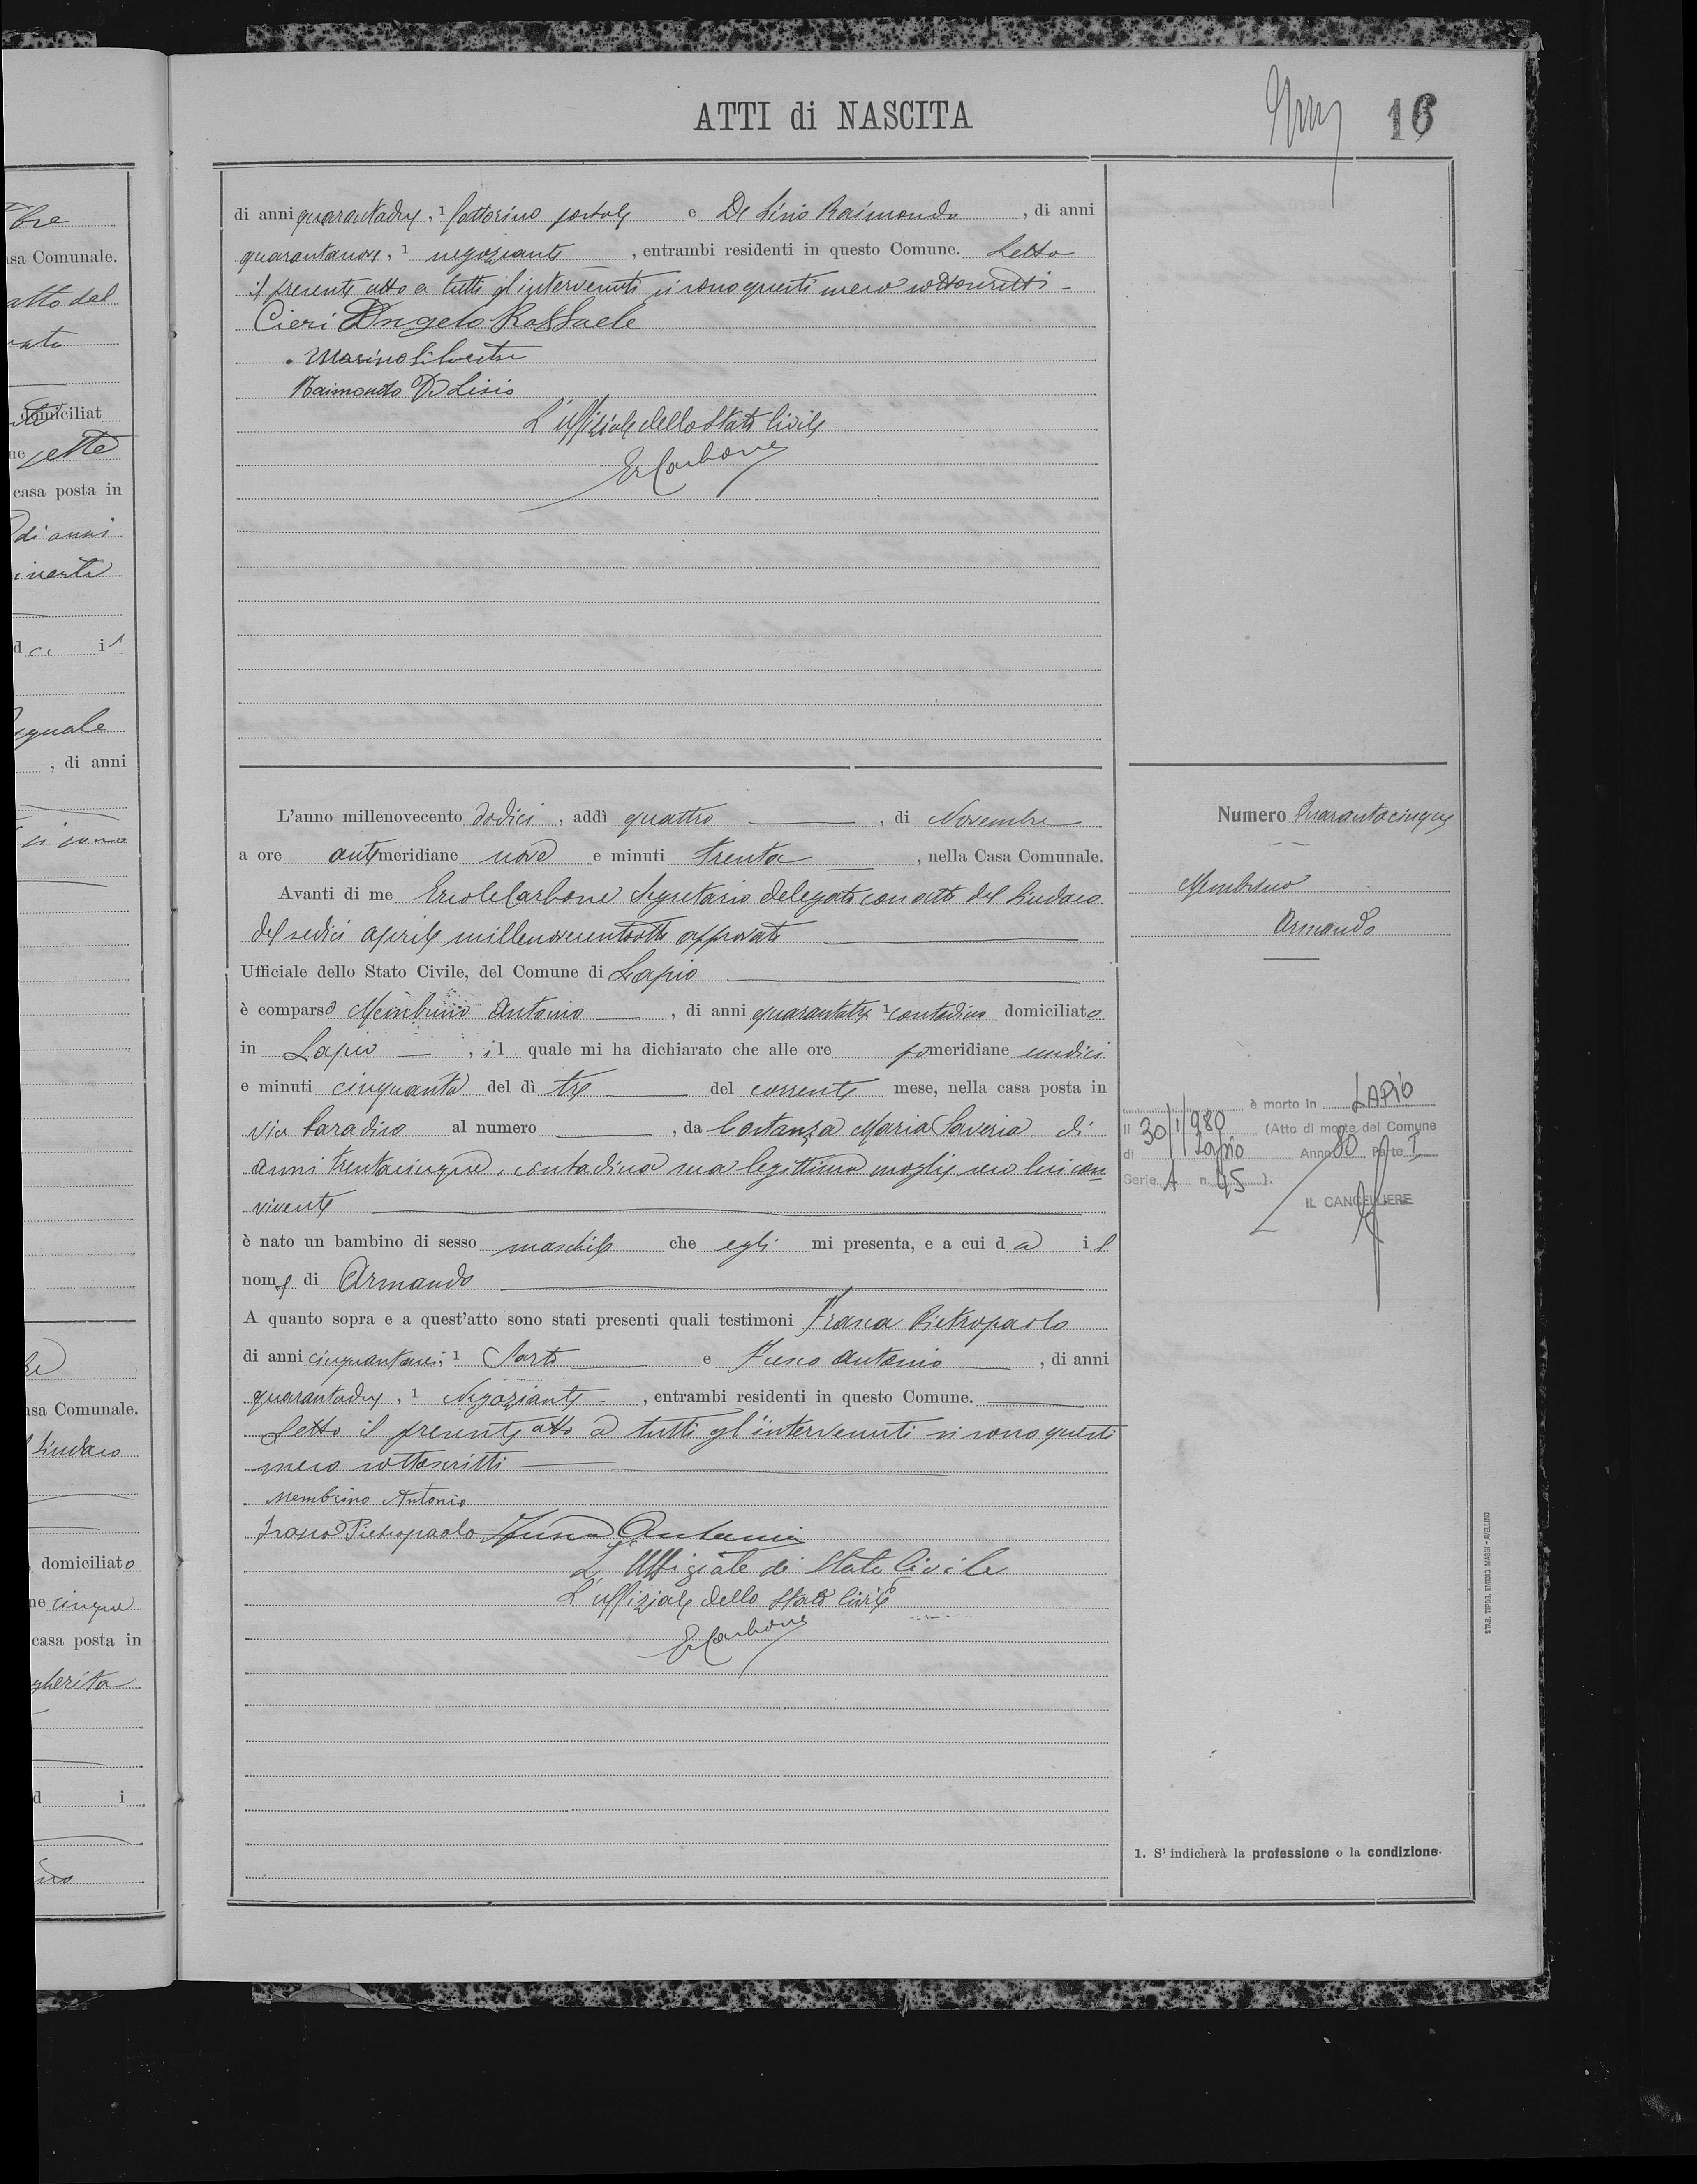 ATTI di NASCITA
16
di anni quarantadue, 1 fattorino postale e De Lisio Raimondo, di anni
quarantanove, 1 negoziante, entrambi residenti in questo Comune. Letto
il presente atto a tutti gl'intervenuti si sono questi meco sottoscritti -
Cieri Angelo Raffaele
Marino Silvestre
Raimondo De Lisio
L'uffiziale dello Stato Civile
Er Carbone
L'anno millenovecento dodici, addì quattro, di Novembre
a ore antimeridiane nove e minuti trenta, nella Casa Comunale.
Avanti di me Ercole Carbone Segretario delegato con atto del Sindaco
del sedici aprile millenovecentootto approvato
Ufficiale dello Stato Civile, del Comune di Lapio
è comparso Membrino Antonio, di anni quarantatre 1 contadino domiciliato
in Lapio, il quale mi ha dichiarato che alle ore pomeridiane undici
e minuti cinquanta del dì tre del corrente mese, nella casa posta in
via Paradiso al numero, da Costanza Maria Saveria di
anni trentacinque, contadina sua legittima moglie seco lui con
vivente
è nato un bambino di sesso maschile che egli mi presenta, e a cui da il
nome di Armando
A quanto sopra e a quest'atto sono stati presenti quali testimoni Pietropaolo
di anni cinquantasei, 1 Sarto e Antonio, di anni
quarantadue, 1 Negoziante, entrambi residenti in questo Comune.
Letto il presente atto a tutti gl'intervenuti si sono questi
meco sottoscritti
Membrino Antonio
Pietropaolo Antonio
L'Uffiziale di Stato Civile
L'uffiziale dello Stato Civile
Er Carbone
Numero Quarantacinque
Membrino
Armando
è morto in LAPIO
il 30/1/980 (Atto di morte del Comune
di Lapio Anno 80 Parte I
Serie A n.
IL CANCELLIERE
1. S' indicherà la professione o la condizione.
asa Comunale.
atto del
domiciliat
ne sette
casa posta in
di anni
d i
, di anni
asa Comunale.
Sindaco
domiciliato
ne cinque
casa posta in
d i